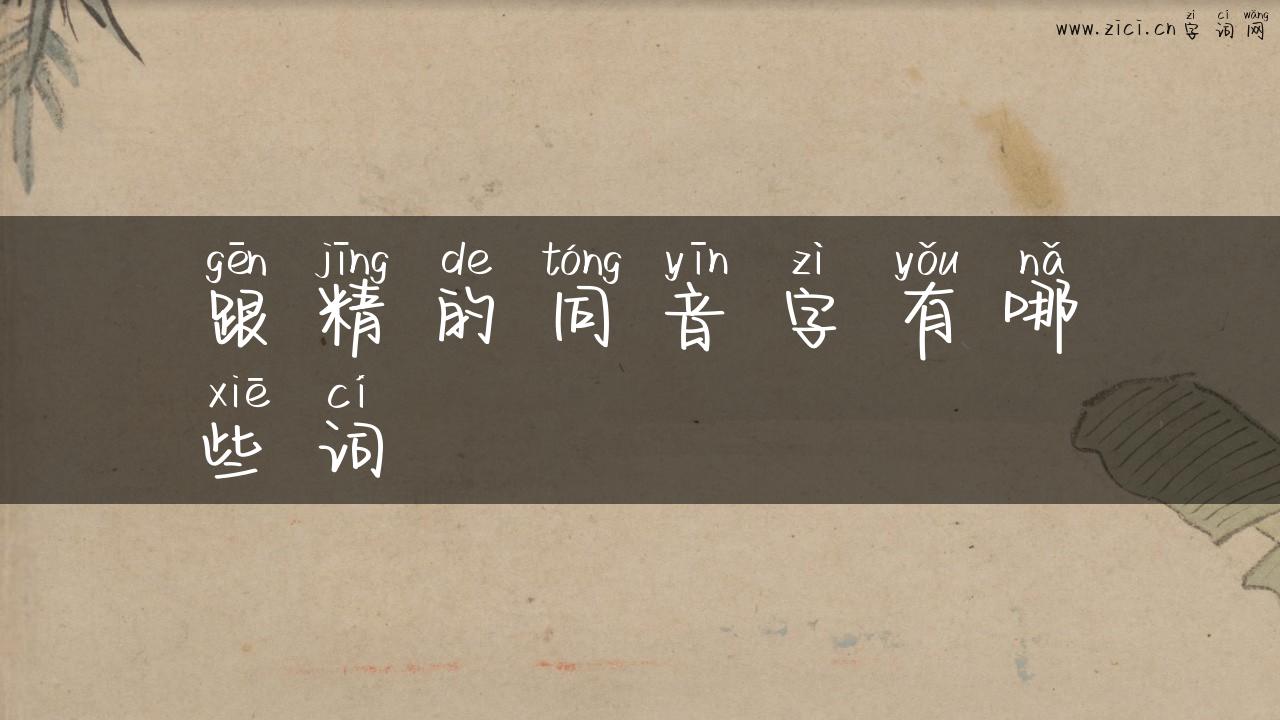 zì cí wǎng
www.zici.cn 字 词 网
gēn jīng de tóng yīn zì yǒu nǎ
跟 精 的 同 音 字 有 哪
xiē cí
些 词